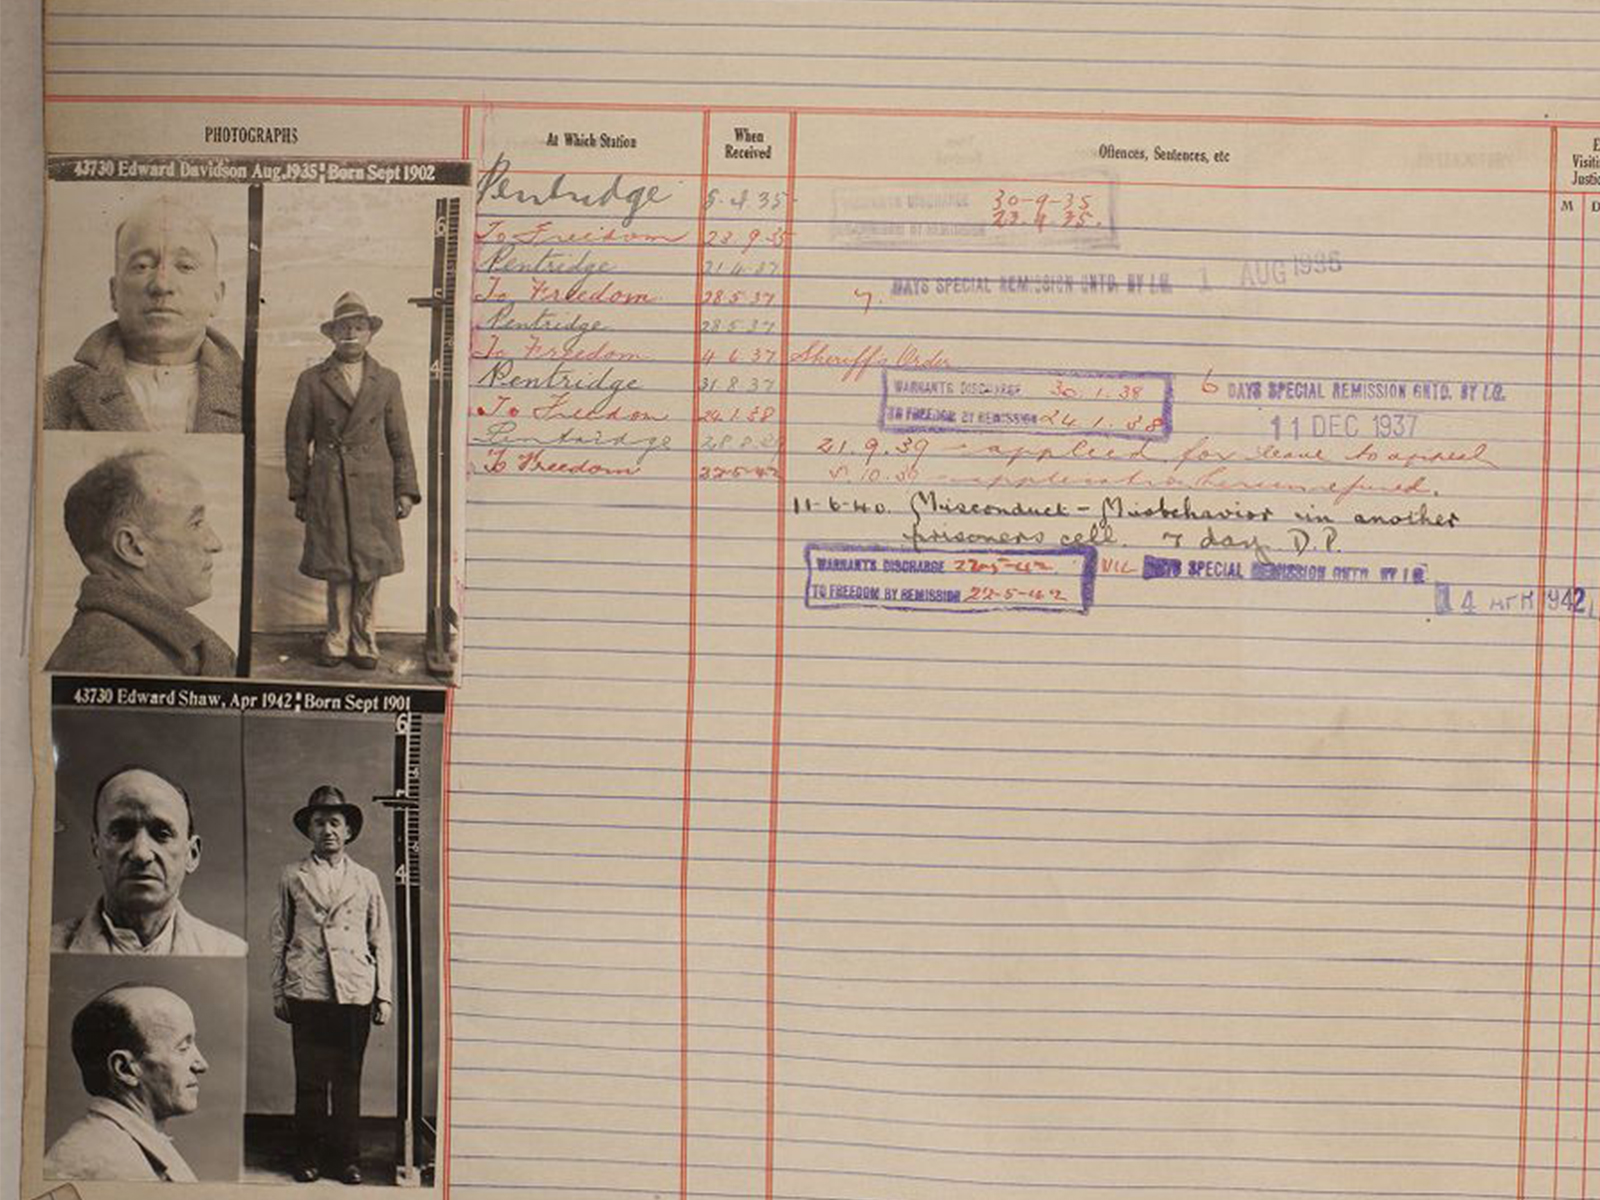 PHOTOGRAPHS
At Which Station
When
Received
Offences, Sentences, etc
Visiti
Justic
M D
43730 Edward Davidson Aug.1935 Born Sept 1902
6
5
4
Pentridge 5.4.35
WARRANTS DISCHARGE 30-9-35
TO FREEDOM BY REMISSION 23.9.35.
To Freedom 23.9.35
Pentridge 21.4.37
7. DAYS SPECIAL REMISSION GNTD. BY I.G. 1 AUG 1935
To Freedom 28.5.37
Pentridge 28.5.37
To Freedom 4.6.37 Sheriff's Order
Pentridge 31.8.37
WARRANTS DISCHARGE 30.1.38
6 DAYS SPECIAL REMISSION GNTD. BY I.G.
To Freedom 24.1.38
TO FREEDOM BY REMISSION 24.1.38
11 DEC 1937
Pentridge 28.8.39
21.9.39 - applied for leave to appeal
To Freedom 22-5-42
5.10.39 - application herein refused.
11-6-40. Misconduct - Misbehavior in another
prisoners cell. 7 day D.P.
WARRANTS DISCHARGE 22-5-42
NIL DAYS SPECIAL REMISSION GNTD. BY I.G.
TO FREEDOM BY REMISSION 22-5-42
14 APR 1942
43730 Edward Shaw, Apr 1942 Born Sept 1901
6
5
4